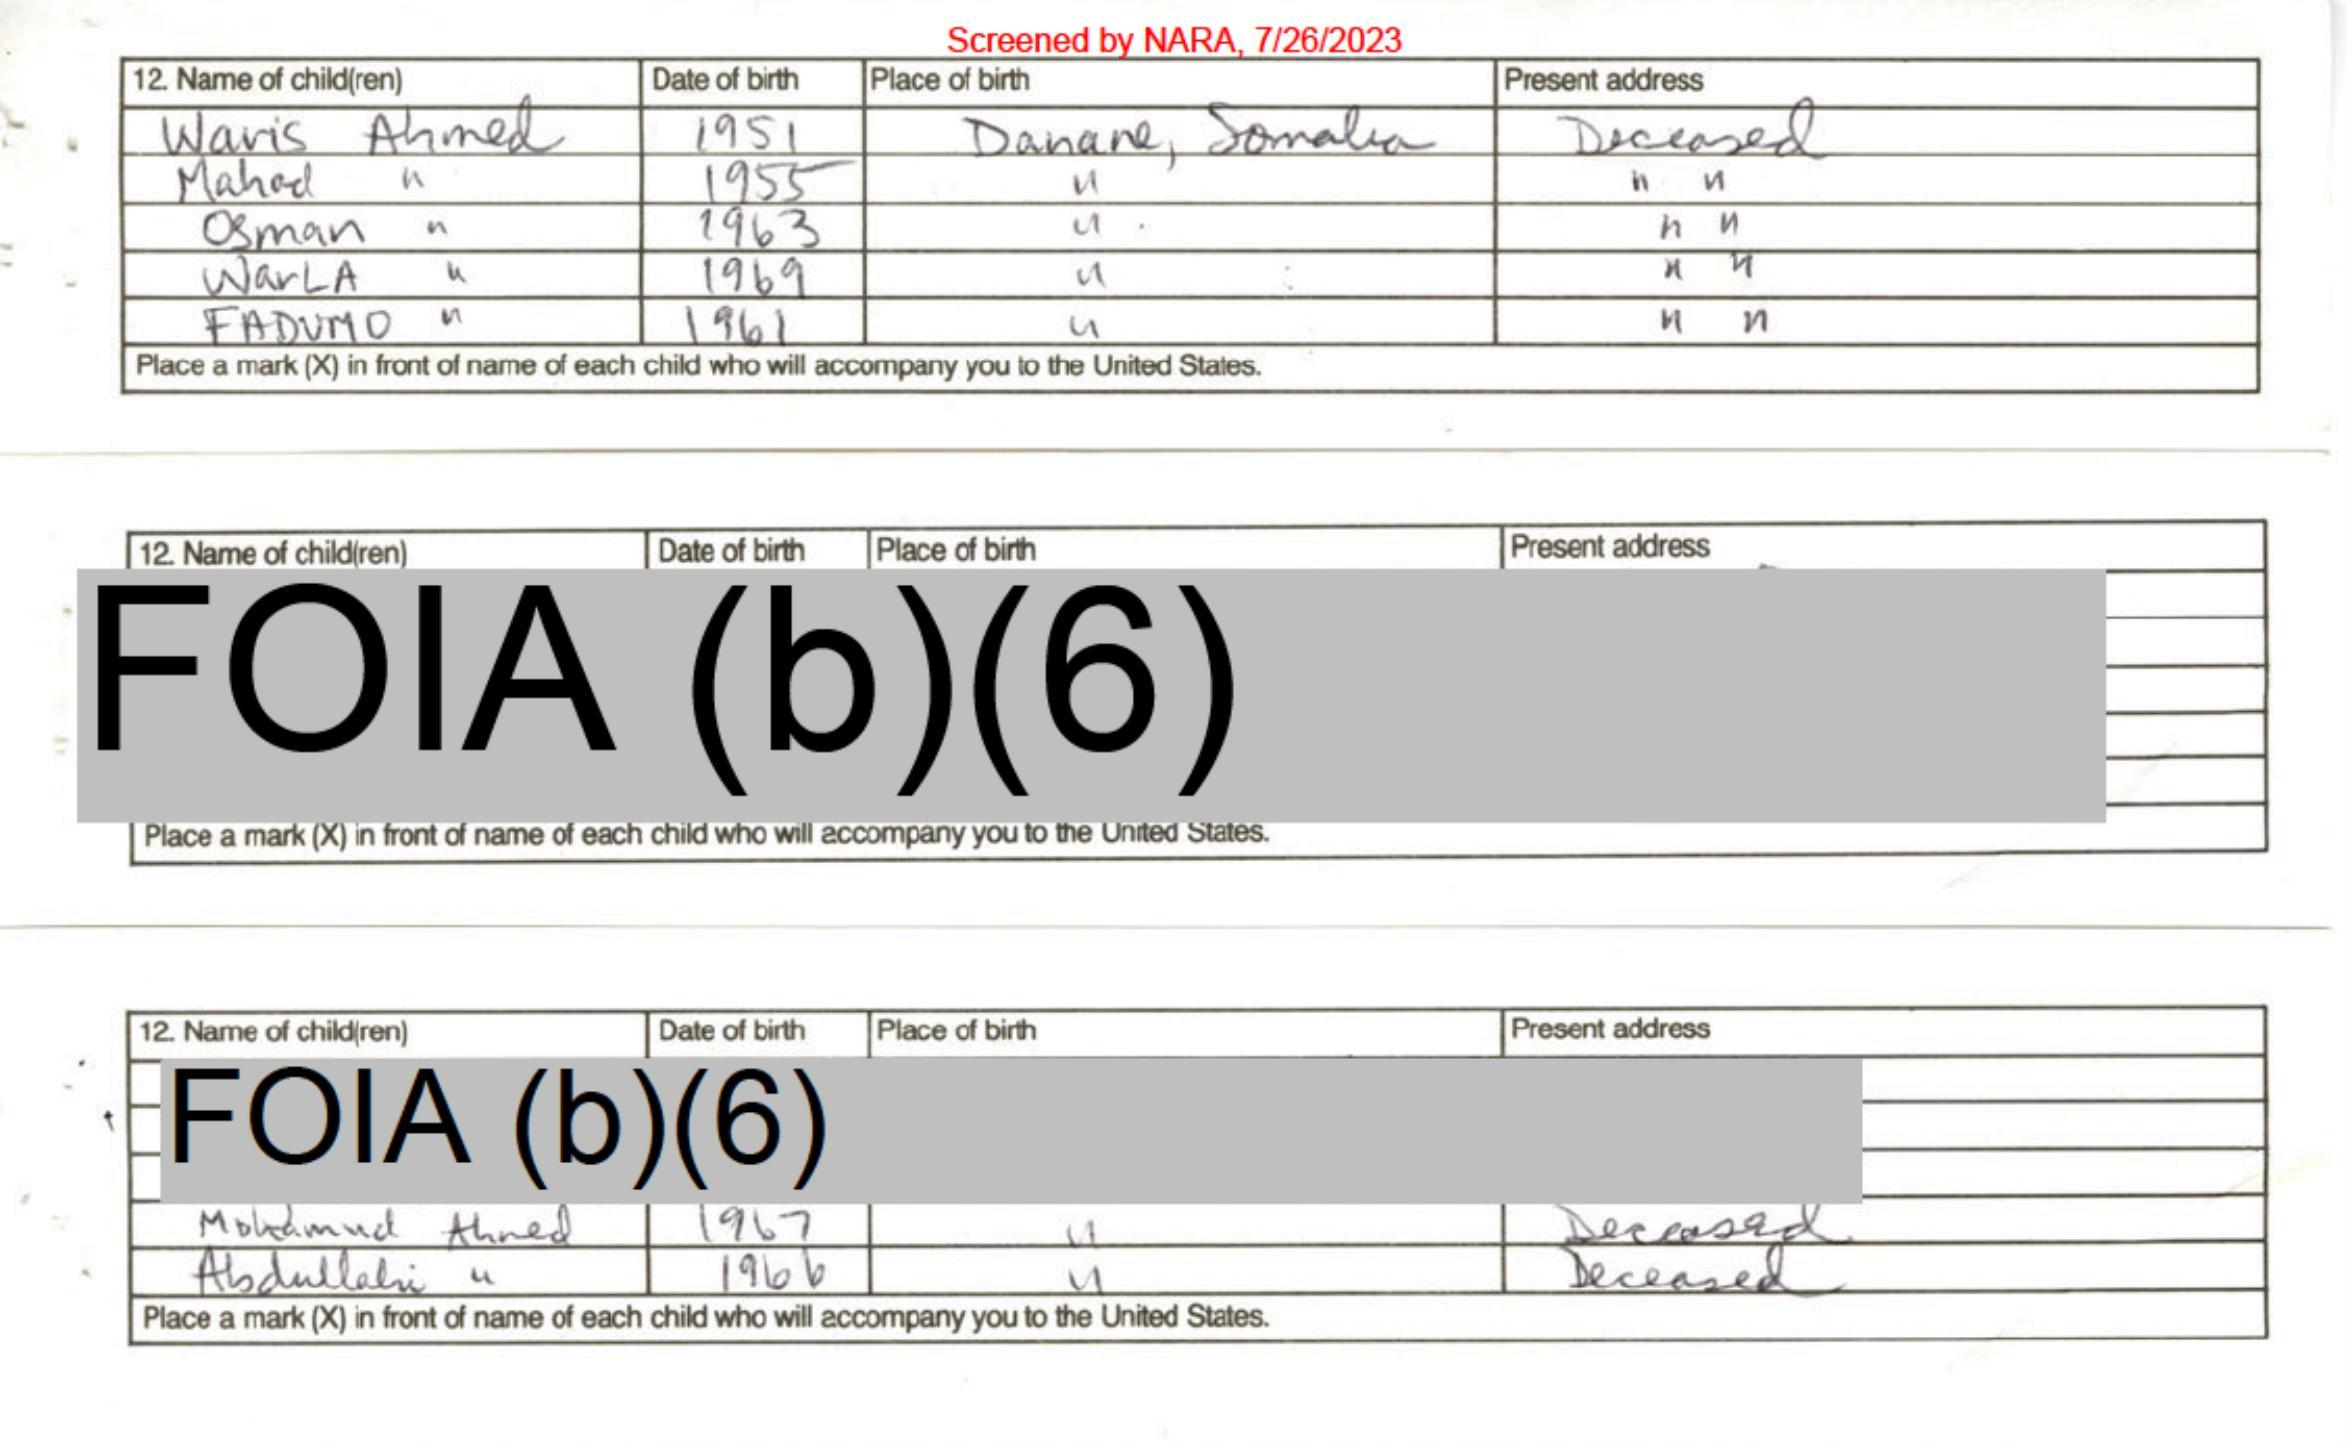 Screened by NARA, 7/26/2023
12. Name of child(ren) Date of birth Place of birth Present address
Waris Ahmed 1951 Danane, Somalia Deceased
Mahad " 1955 " " "
Osman " 1963 " " "
WarLA " 1969 " " "
FADUMO " 1961 " " "
Place a mark (X) in front of name of each child who will accompany you to the United States.
12. Name of child(ren) Date of birth Place of birth Present address
FOIA (b)(6)
Place a mark (X) in front of name of each child who will accompany you to the United States.
12. Name of child(ren) Date of birth Place of birth Present address
FOIA (b)(6)
Mohamud Ahmed 1967 " Deceased
Abdullahi " 1966 " Deceased
Place a mark (X) in front of name of each child who will accompany you to the United States.